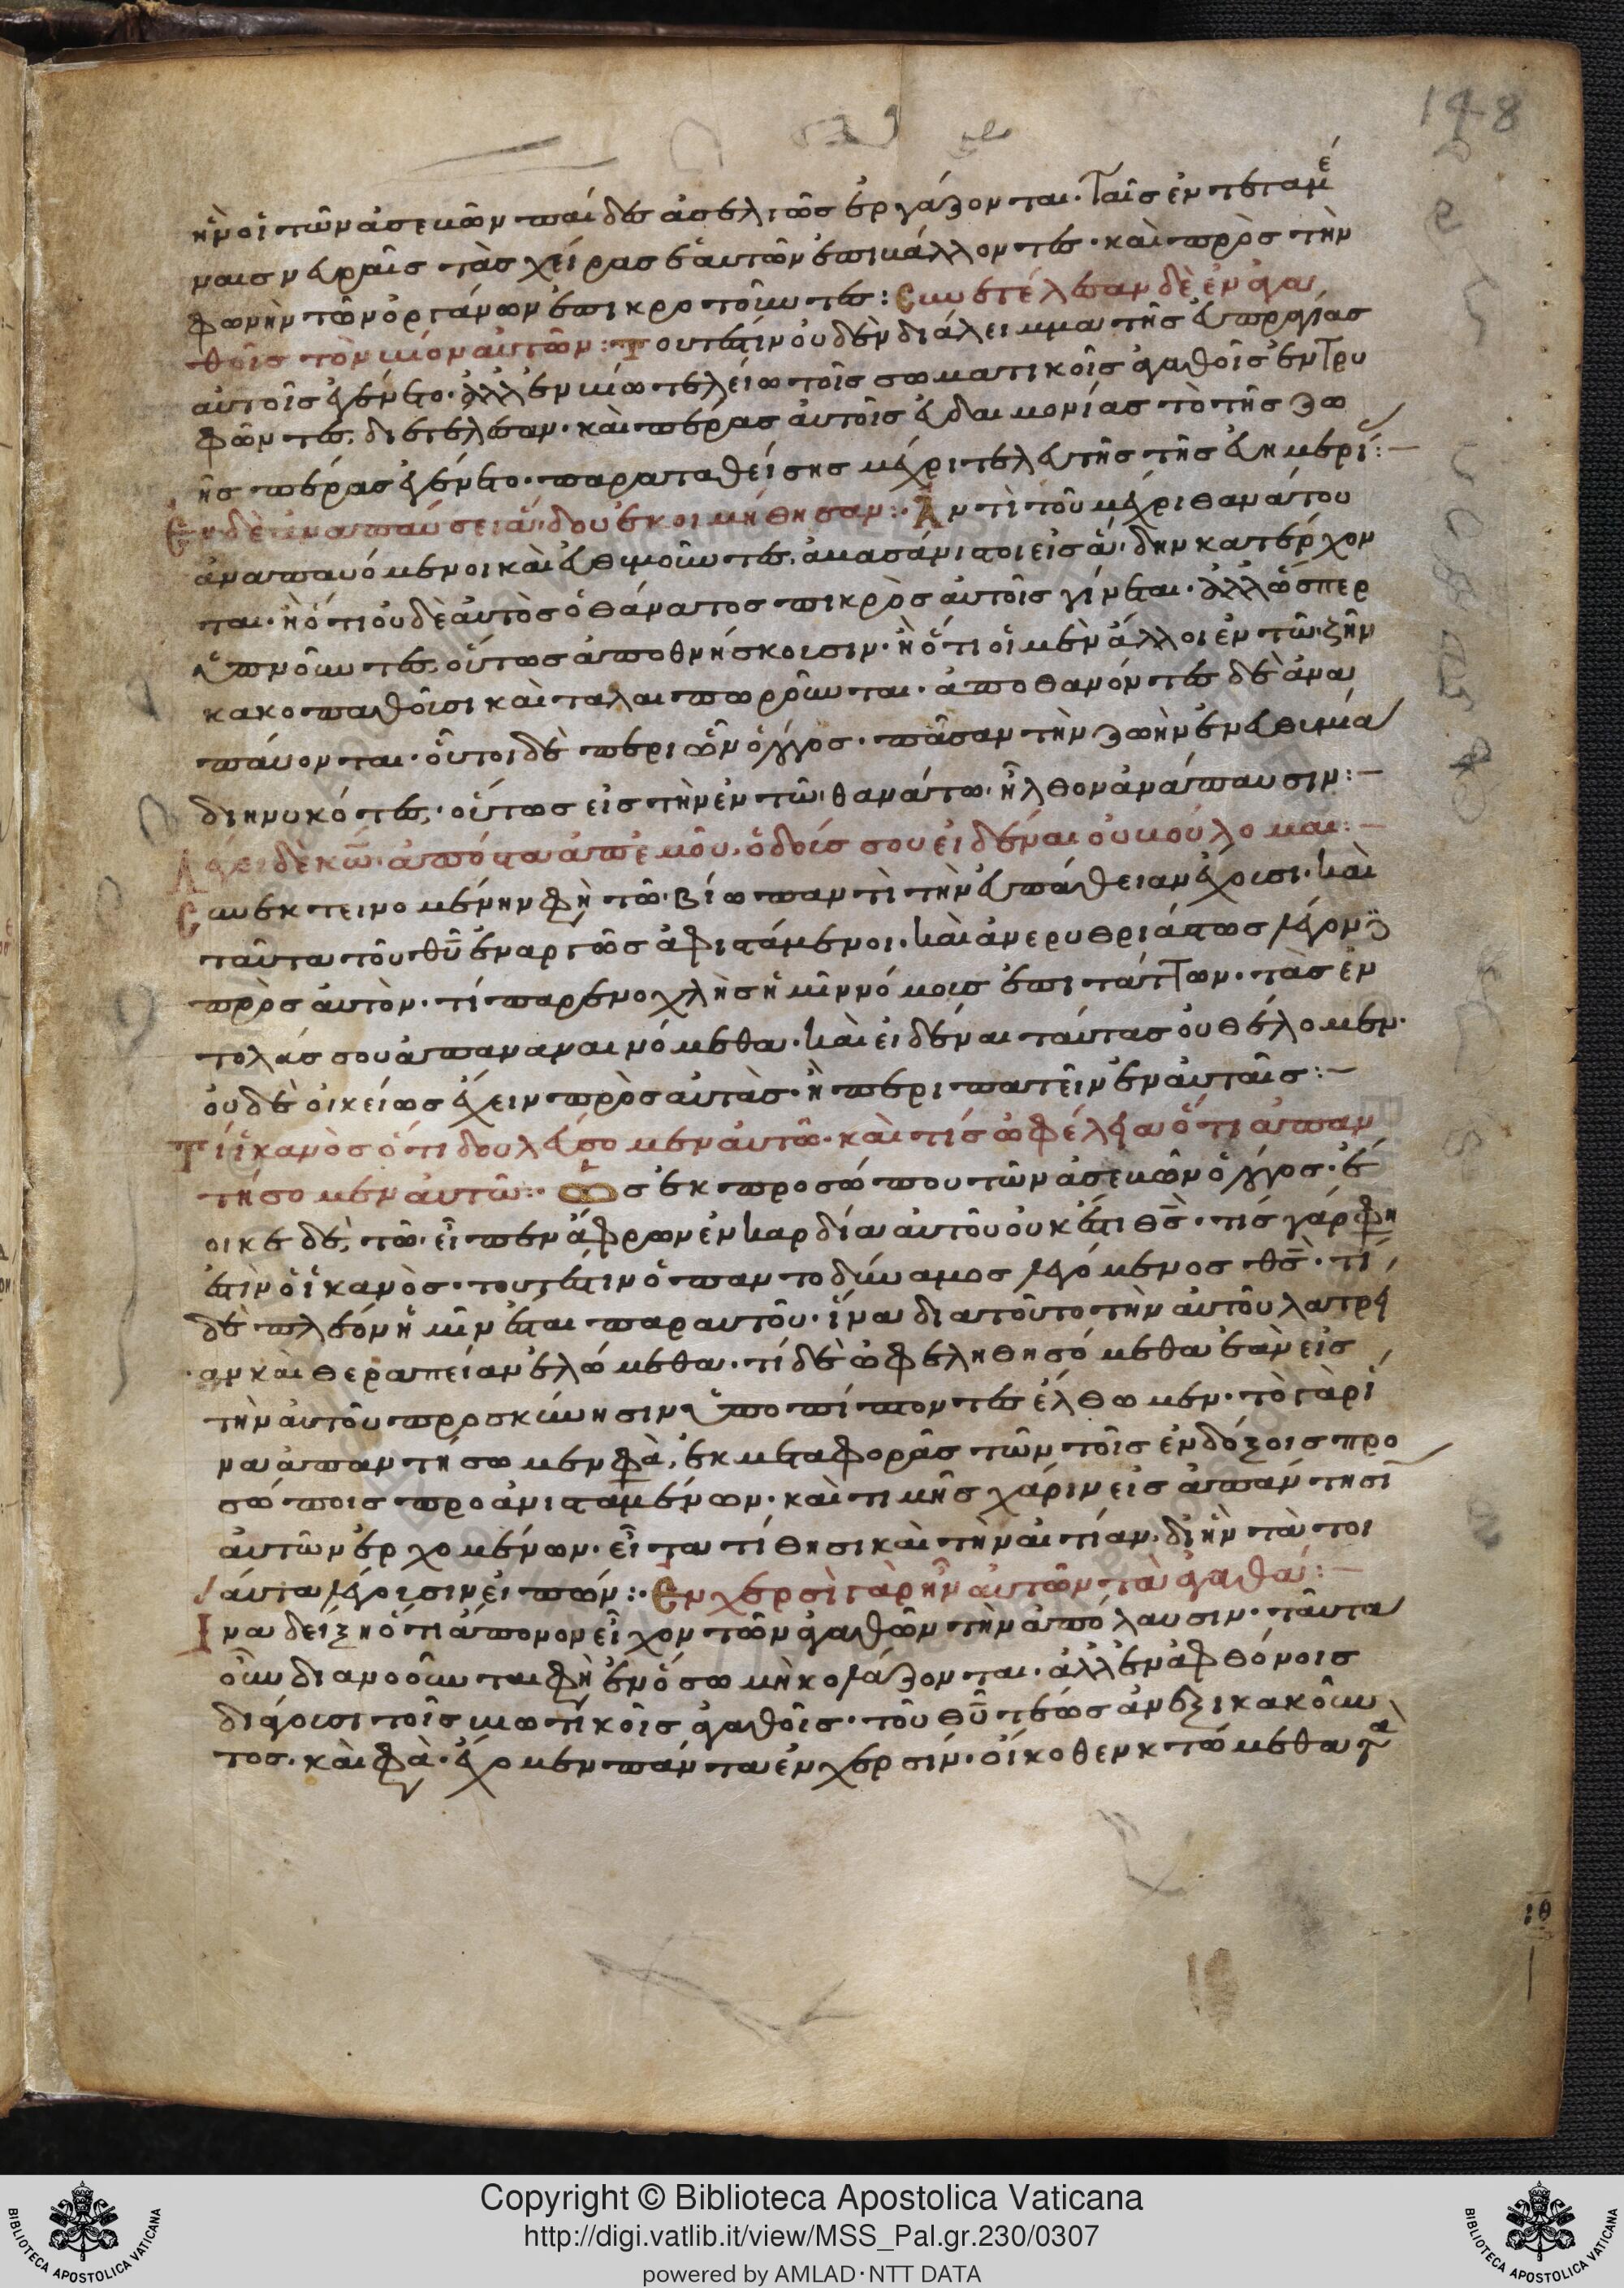 148
ἣν οἱ τῶν ἀσεβῶν παῖδες ἀσελγῶς ἐργάζονται. ταῖς ἐντεταμέ
ναις νευραῖς τὰς χεῖρας ἑαυτῶν ἐπιβάλλοντες. καὶ πρὸς τὴν
φωνὴν τῶν ὀργάνων ἐπικροτοῦντες: Συνετέλεσαν δὲ ἐν ἀγα
θοῖς τὸν βίον αὐτῶν: Τουτέστιν οὐδὲν διάλειμμα τῆς εὐπραγίας
αὐτοῖς ἐγένετο. ἀλλ' ἐν βίω τελείω τοῖς σωματικοῖς ἀγαθοῖς ἐντρυ
φῶντες, διετέλεσαν. καὶ πέρας αὐτοῖς εὐδαιμονίας τὸ τῆς ζω
ῆς πέρας ἐγένετο. παραταθείσης μέχρι τελευτῆς τῆς εὐημερί:
Ἐν δὲ ἀναπαύσει ἅδου ἐκοιμήθησαν: Ἀντὶ τοῦ μέχρι θανάτου
ἀναπαυόμενοι καὶ εὐθυμοῦντες, ἀβασάνιστοι εἰς ἅδην κατέρχον
ται. ἢ ὅτι οὐδὲ αὐτὸς ὁ θάνατος πικρὸς αὐτοῖς γίνεται. ἀλλ' ὥσπερ
ὑπνοῦντες, οὕτως ἀποθνήσκουσιν. ἢ ὅτι οἱ μὲν ἄλλοι ἐν τῶ ζῆν
κακοπαθοῦσι καὶ ταλαιπωροῦνται. ἀποθανόντες δὲ ἀνα
παύονται. οὗτοι δὲ περὶ ὧν ὁ λόγος. πᾶσαν τὴν ζωὴν ἐν εὐθυμία
διηνυκότες, οὕτως εἰς τὴν ἐν τῶ θανάτω ἦλθον ἀνάπαυσιν:
Λέγει δὲ κω ἀπόστα ἀπ' ἐμοῦ, ὁδούς σου εἰδέναι οὐ βούλομαι:
Συνεκτεινομένην φη τῶ βίω παντὶ τὴν εὐπάθειαν ἔχουσι. καὶ
ταῦτα τοῦ θυ ἐναργῶς ἀφιστάμενοι. καὶ ἀνερυθριάστως λέγοντες
πρὸς αὐτὸν. τί παρενοχλῆς ἡμῖν νόμοις ἐπιτάττων. τὰς ἐν
τολάς σου ἀπαναινόμεθα. καὶ εἰδέναι ταύτας οὐ θέλομεν.
οὐδὲ οἰκείως ἔχειν πρὸς αὐτὰς. ἢ περιπατεῖν ἐν αὐταῖς:
Τί ἱκανὸς ὅτι δουλεύσομεν αὐτῶ. καὶ τίς ὠφέλεια ὅτι ἀπαν
τήσομεν αὐτῶ: Ὡς ἐκ προσώπου τῶν ἀσεβῶν ὁ λόγος. ἔ
οικε δὲ, τῶ εἶπεν ἄφρων ἐν καρδία αὐτοῦ οὐκ ἔστι θς. τίς γάρ φη
ἐστὶν ὁ ἱκανὸς. τουτέστιν ὁ παντοδύναμος λεγόμενος θς. τί
δὲ πλέον ἡμῖν ἔσται παρ αὐτοῦ. ἵνα διὰ τοῦτο τὴν αὐτοῦ λατρεί
αν καὶ θεραπείαν ἑλώμεθα. τί δὲ ὠφεληθησόμεθα ἐὰν εἰς
τὴν αὐτοῦ προσκύνησιν ὑποπίπτοντες ἔλθωμεν. τὸ γὰρ ἵ
να ἀπαντήσωμεν φα, ἐκ μεταφορᾶς τῶν τοῖς ἐνδόξοις προ
σώποις προανισταμένων. καὶ τιμῆς χάριν εἰς ἀπάντησι
αὐτῶν ἐρχομένων. εἶτα τίθησι καὶ τὴν αἰτίαν, δι' ἣν τὰ τοι
αῦτα λέγουσιν εἰπών: Ἐν χερσὶ γὰρ ἦν αὐτῶν τὰ ἀγαθά:
Ἵνα δείξη ὅτι ἄπονον εἶχον τῶν ἀγαθῶν τὴν ἀπόλαυσιν. ταῦτα
οὖν διανοοῦνται φη ἐν ὅσω μὴ κολάζονται. ἀλλ' ἐν ἀφθόνοις
διάγουσι τοῖς βιωτικοῖς ἀγαθοῖς. τοῦ θυ τέως ἀνεξικακοῦν
τος. καὶ φα. ἔχομεν πάντα ἐν χερσίν. οἴκοθεν κτώμεθα
ιθ
Copyright © Biblioteca Apostolica Vaticana
http://digi.vatlib.it/view/MSS_Pal.gr.230/0307
powered by AMLAD·NTT DATA
BIBLIOTECA APOSTOLICA VATICANA
BIBLIOTECA APOSTOLICA VATICANA